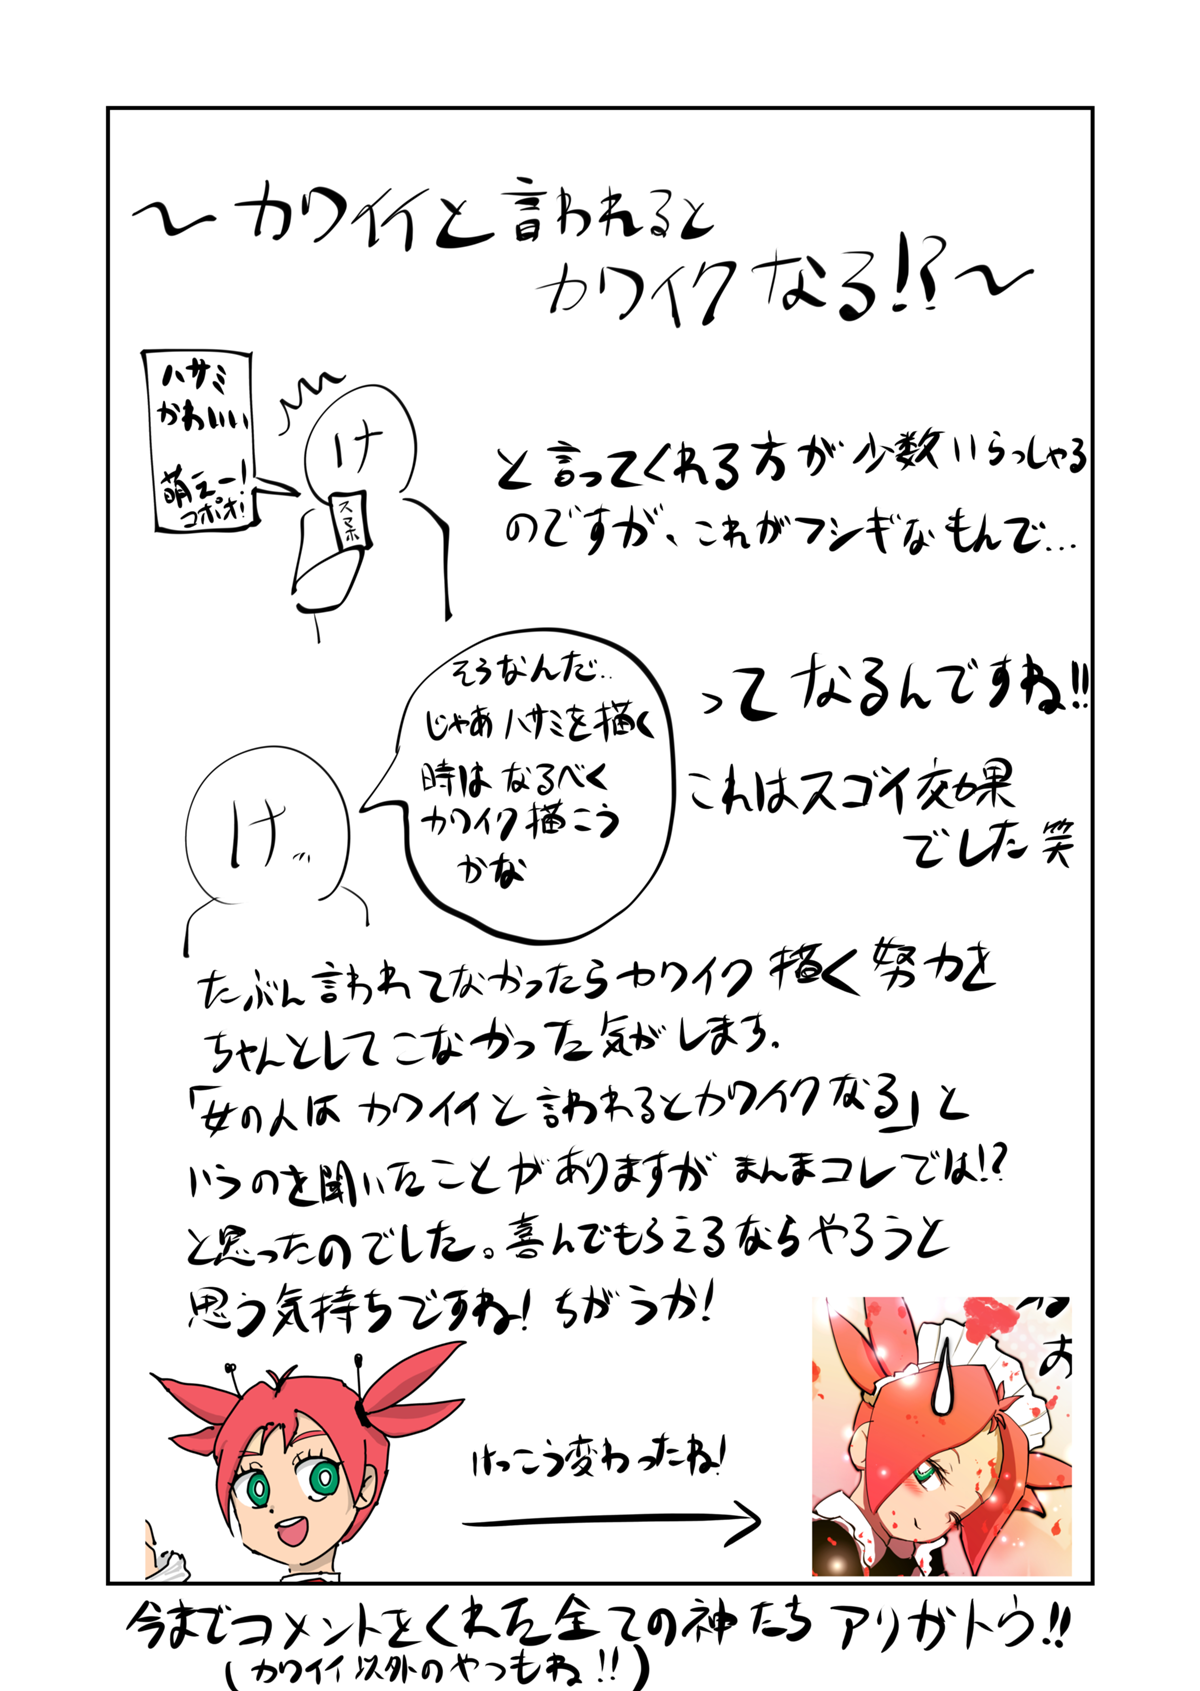 〜カワイイと言われると
カワイクなる!?〜
ハサミ
かわいい
萌えー!
コポオ!
け
スマホ
と言ってくれる方が少数いらっしゃる
のですが、これがフシギなもんで…
そうなんだ…
じゃあハサミを描く
時はなるべく
カワイク描こう
かな
け
ってなるんですね!!
これはスゴイ効果
でした笑
たぶん言われてなかったらカワイク描く努力を
ちゃんとしてこなかった気がします。
「女の人はカワイイと言われるとカワイクなる」と
いうのを聞いたことがありますがまんまコレでは!?
と思ったのでした。喜んでもらえるならやろうと
思う気持ちですね!ちがうか!
けっこう変わったね!
今までコメントをくれた全ての神たちアリガトウ!!
(カワイイ以外のやつもね!!)